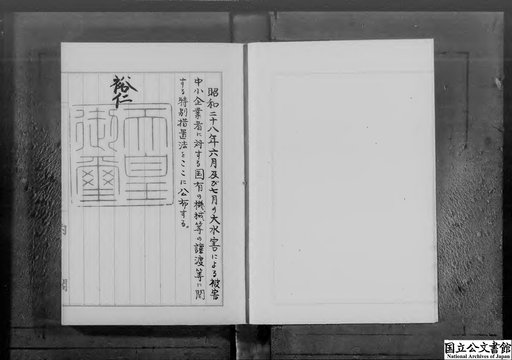 昭和二十八年六月及び七月の大水害による被害
中小企業者に対する国有の機械等の譲渡等に関
する特別措置法をここに公布する。
裕仁
天皇
御璽
国立公文書館
National Archives of Japan